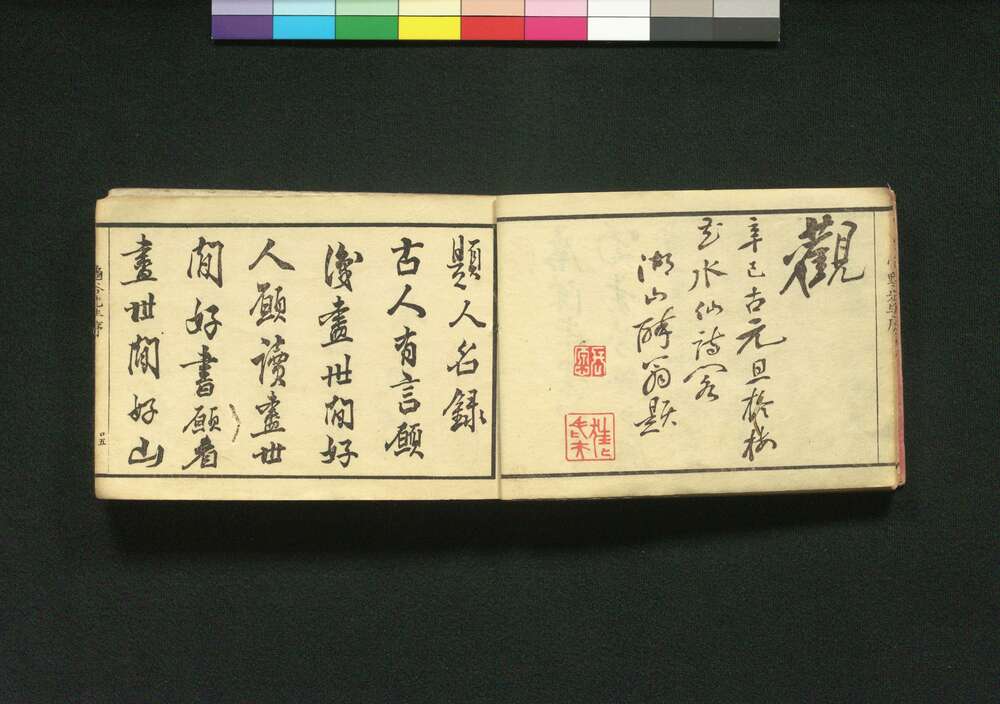 觀
辛巳古元旦於梅
花水仙詩窓
湖山醉翁題
題人名録
古人有言願
識盡世間好
人願讀盡世
間好書願看
盡世間好山